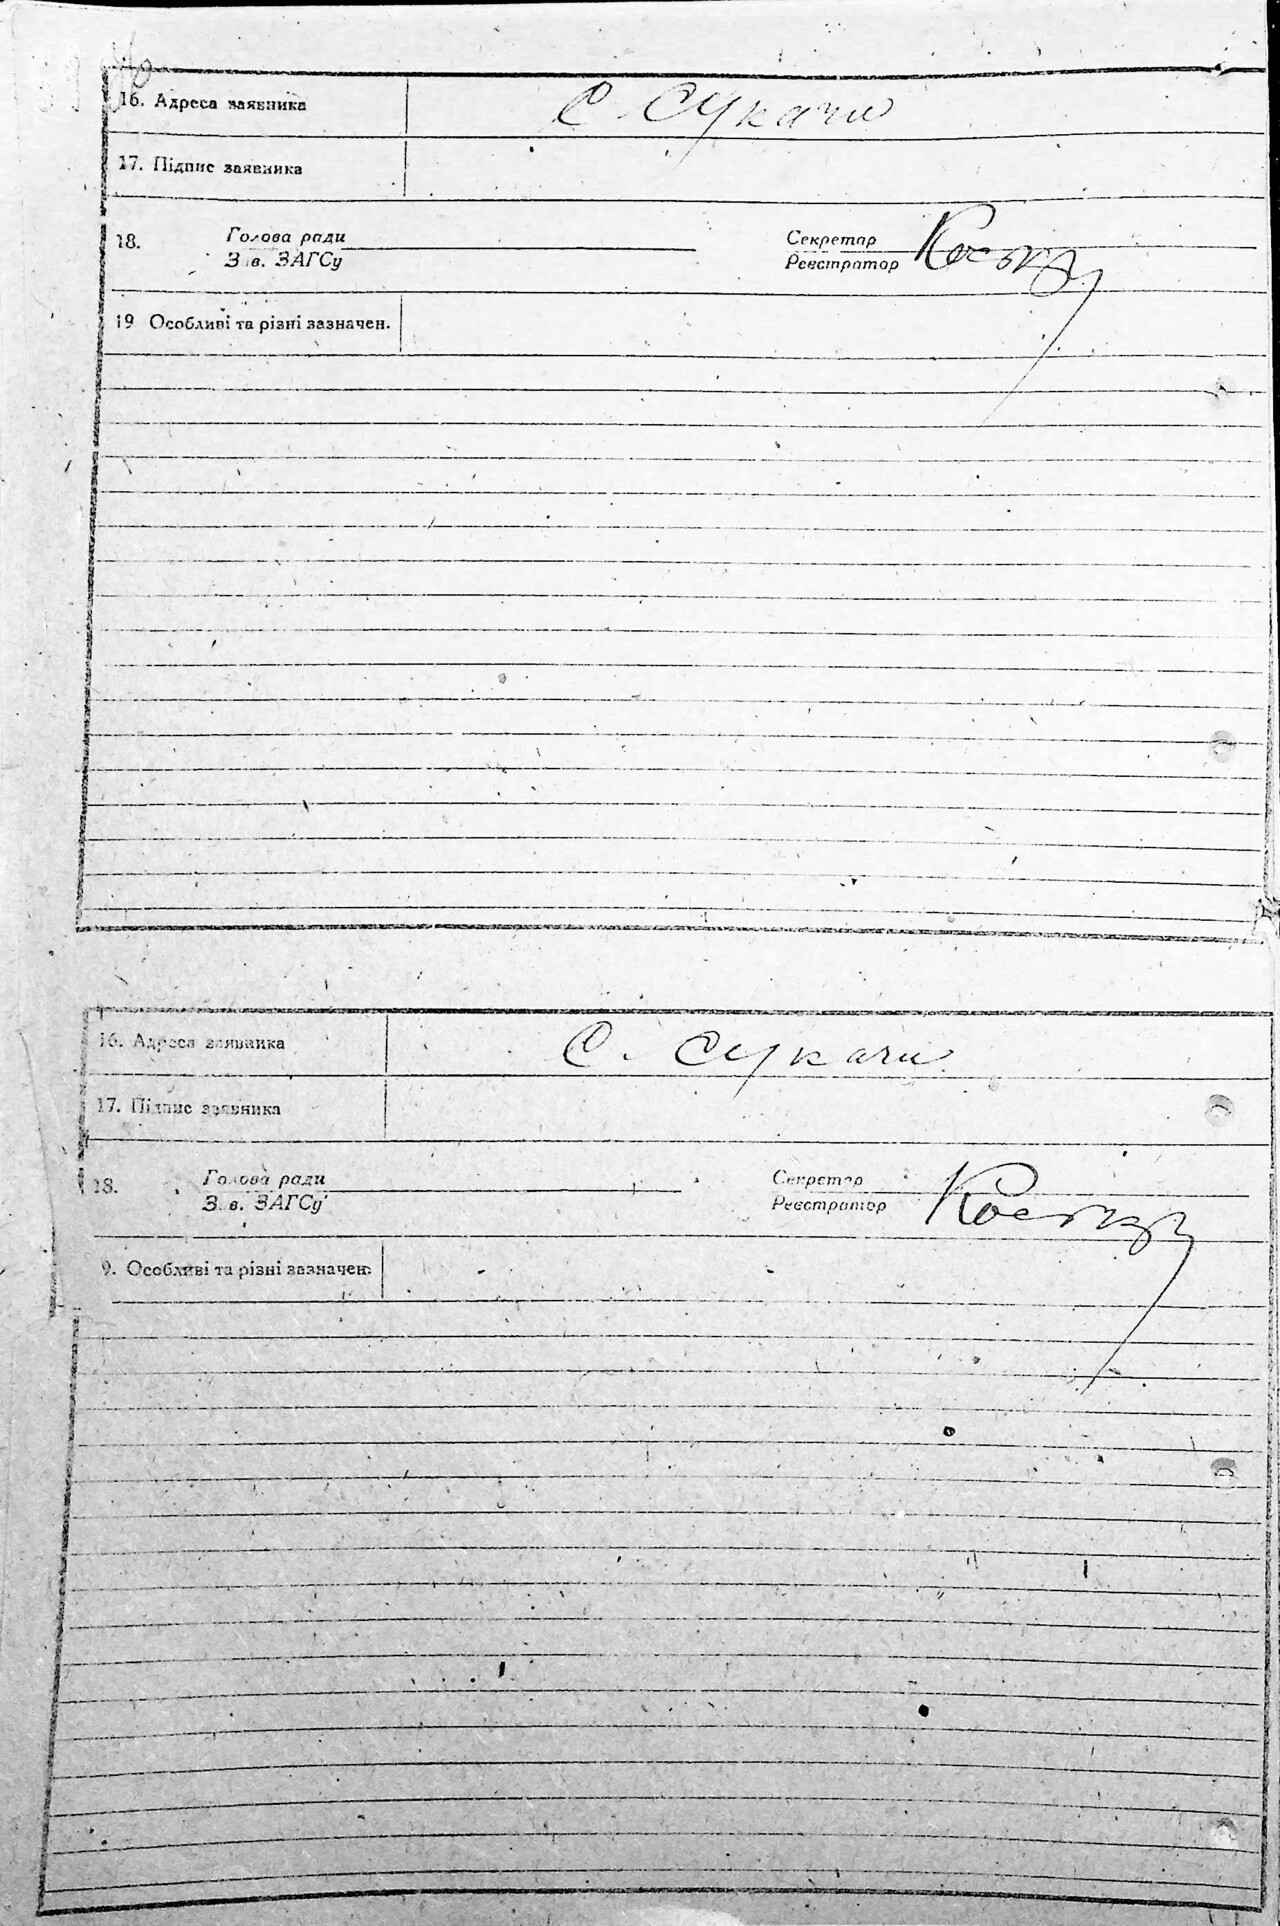 16. Адреса заявника С. Сукачи
17. Підпис заявника
18. Голова ради Секретар
Зав. ЗАГСу Реєстратор
19 Особливі та різні зазначен.
16. Адреса заявника С. Сукачи
17. Підпис заявника
18. Голова ради Секретар
Зав. ЗАГСу Реєстратор
9. Особливі та різні зазначен.